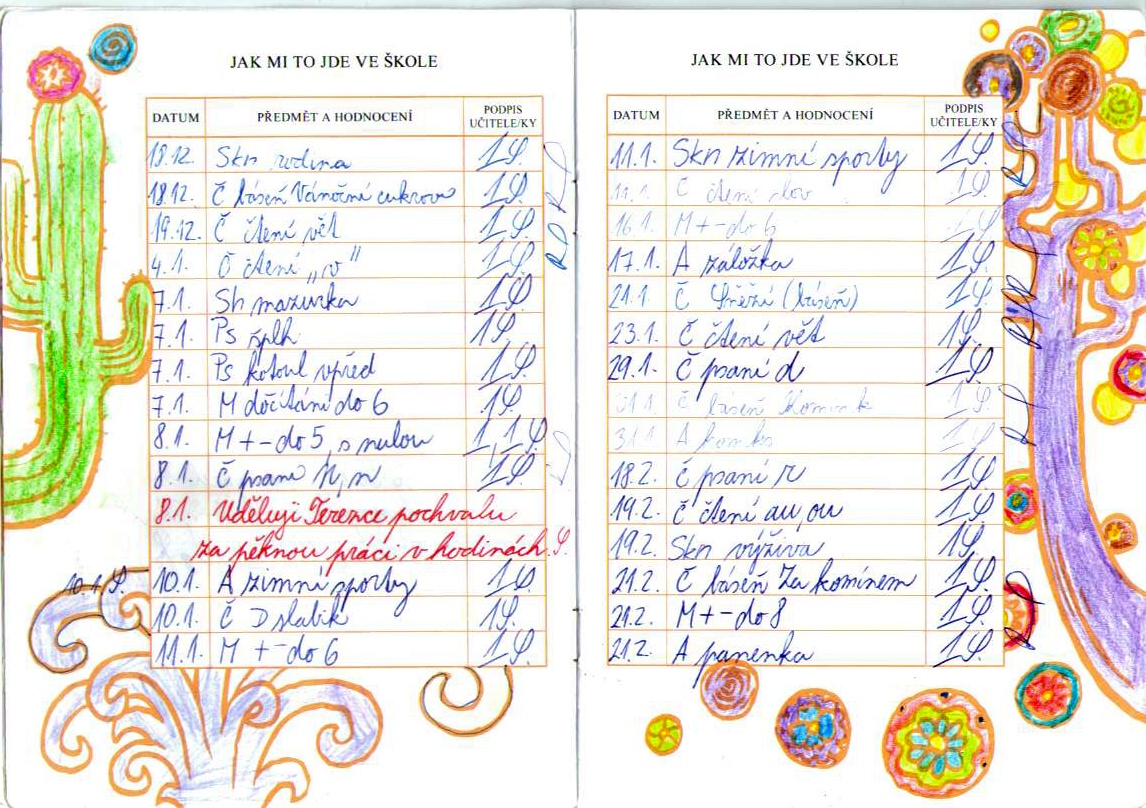 JAK MI TO JDE VE ŠKOLE
DATUM PŘEDMĚT A HODNOCENÍ PODPIS UČITELE/KY
18.12. Skn rodina 1
18.12. Č báseň Vánoční cukroví 1
19.12. Č čtení vět 1
4.1. Č čtení „v" 1
7.1. Sh mazurka 1
7.1. Ps šplh 1
7.1. Ps kotoul vpřed 1
7.1. M dočítání do 6 1
8.1. M +- do 5 s nulou 1, 1
8.1. Č psaní N, n 1
8.1. Uděluji Terezce pochvalu
za pěknou práci v hodinách.
10.1. A zimní sporty 1
10.1. Č D slabik 1
11.1. M +- do 6 1
JAK MI TO JDE VE ŠKOLE
DATUM PŘEDMĚT A HODNOCENÍ PODPIS UČITELE/KY
11.1. Skn zimní sporty 1
11.1. Č čtení slov 1
16.1. M +- do 6 1
17.1. A záložka 1
21.1. Č Sněží (báseň) 1
23.1. Č čtení vět 1
29.1. Č psaní d 1
31.1. Č báseň 1
31.1 A komiks 1
18.2. Č psaní r 1
19.2. Č čtení au, ou 1
19.2. Skn výživa 1
21.2. Č báseň Za komínem 1
21.2. M +- do 8 1
21.2. A panenka 1